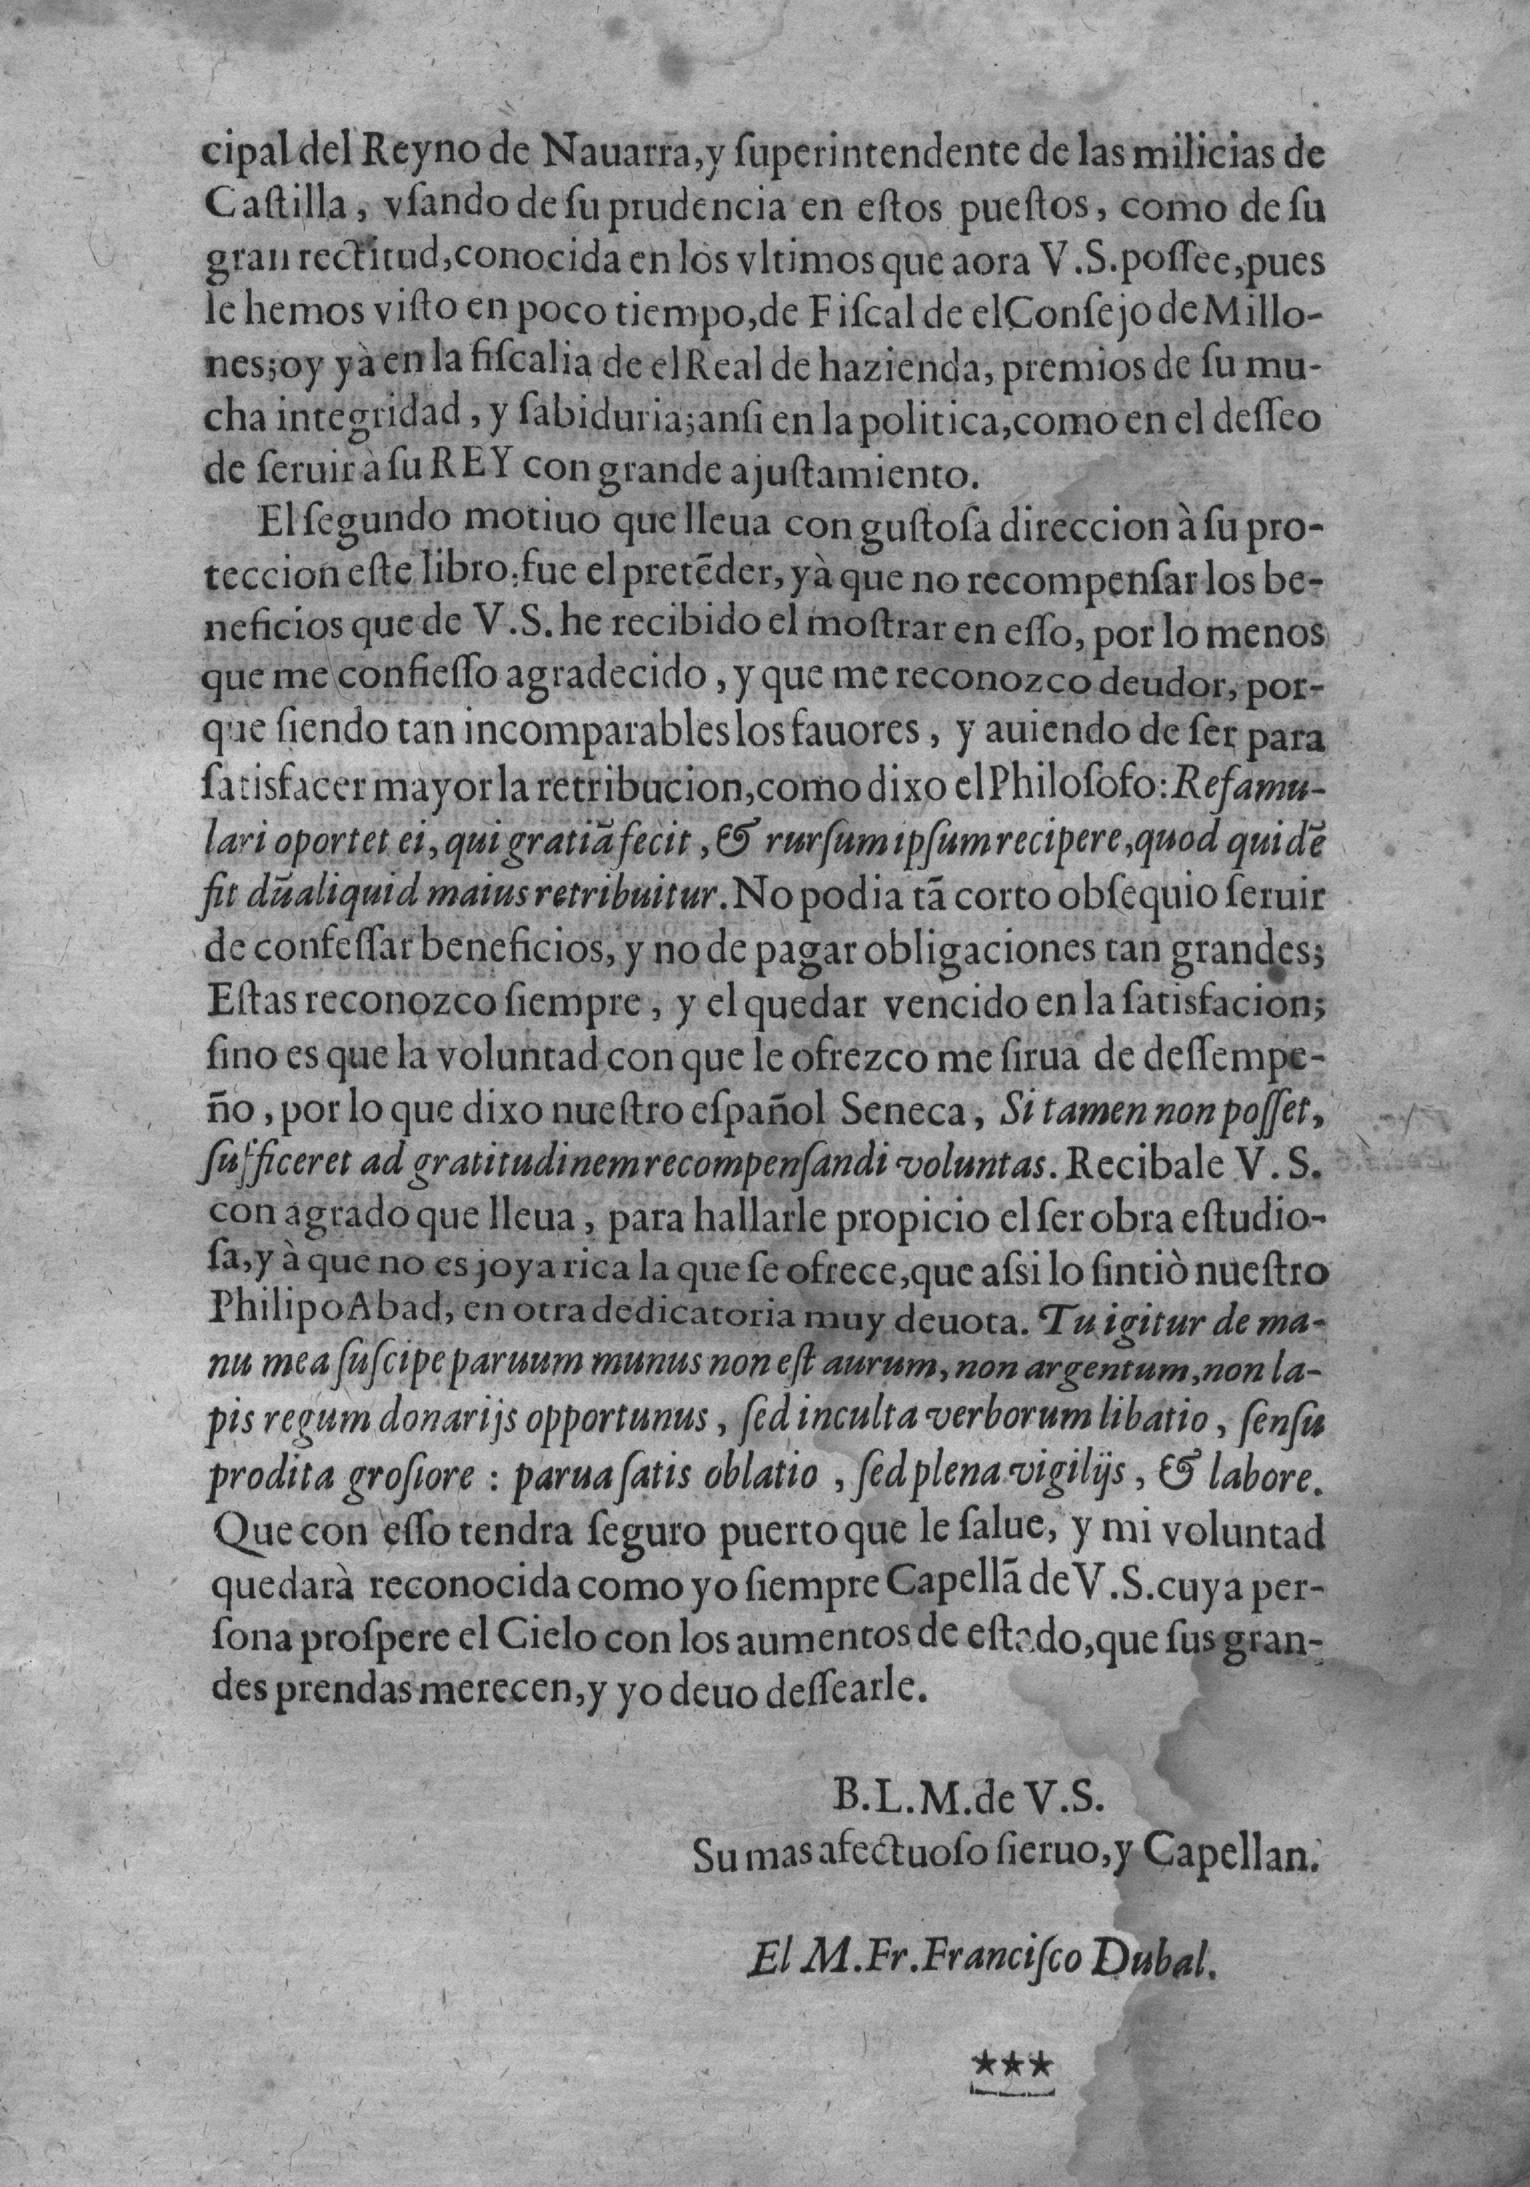 cipal del Reyno de Nauarra, y ſuperintendente de las milicias de
Caſtilla, vſando de ſu prudencia en eſtos pueſtos, como de ſu
gran rectitud, conocida en los vltimos que aora V.S. poſſee, pues
le hemos viſto en poco tiempo, de Fiſcal de el Conſejo de Millo-
nes; oy yà en la fiſcalia de el Real de hazienda, premios de ſu mu-
cha integridad, y ſabiduria; anſi en la politica, como en el deſſeo
de ſeruir à ſu REY con grande ajuſtamiento.
El ſegundo motiuo que lleua con guſtoſa direccion à ſu pro-
teccion eſte libro, fue el pretẽder, yà que no recompenſar los be-
neficios que de V.S. he recibido el moſtrar en eſſo, por lo menos
que me confieſſo agradecido, y que me reconozco deudor, por-
que ſiendo tan incomparables los fauores, y auiendo de ſer para
ſatisfacer mayor la retribucion, como dixo el Philoſofo: Refamu-
lari oportet ei, qui gratiã fecit, & rurſum ipſum recipere, quod quidẽ
fit dũ aliquid maius retribuitur. No podia tã corto obſequio ſeruir
de confeſſar beneficios, y no de pagar obligaciones tan grandes;
Eſtas reconozco ſiempre, y el quedar vencido en la ſatisfacion;
ſino es que la voluntad con que le ofrezco me ſirua de deſſempe-
ño, por lo que dixo nueſtro eſpañol Seneca, Si tamen non poſſet,
ſufficeret ad gratitudinem recompenſandi voluntas. Recibale V.S.
con agrado que lleua, para hallarle propicio el ſer obra eſtudio-
ſa, y à que no es joya rica la que ſe ofrece, que aſsi lo ſintiò nueſtro
Philipo Abad, en otra dedicatoria muy deuota. Tu igitur de ma-
nu mea ſuſcipe paruum munus non eſt aurum, non argentum, non la-
pis regum donarijs opportunus, ſed inculta verborum libatio, ſenſu
prodita groſiore: parua ſatis oblatio, ſed plena vigilijs, & labore.
Que con eſſo tendra ſeguro puerto que le ſalue, y mi voluntad
quedarà reconocida como yo ſiempre Capellã de V.S. cuya per-
ſona proſpere el Cielo con los aumentos de eſtado, que ſus gran-
des prendas merecen, y yo deuo deſſearle.
B.L.M. de V.S.
Su mas afectuoſo ſieruo, y Capellan.
El M. Fr. Franciſco Dubal.
***